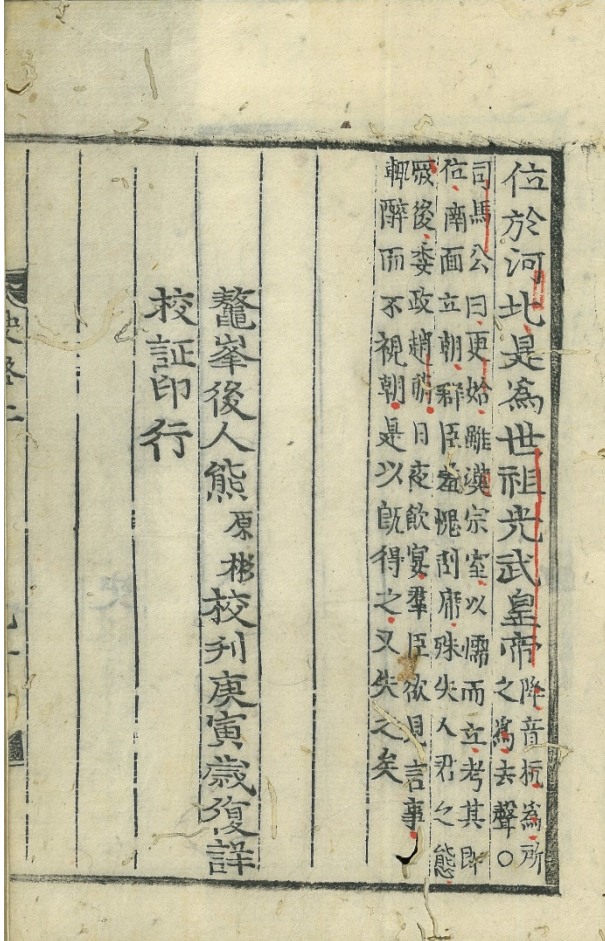 位於河北是爲世祖光武皇帝降音杭爲所
之爲去聲○
司馬公曰更始雖漢宗室以懦而立考其即
位南面立朝群臣羞愧刮席殊失人君之態
厥後委政趙萌日夜飲宴羣臣欲見言事
輒醉而不視朝是以旣得之又失之矣
鼇峯後人熊原彬校刋庚寅歳復詳
校証印行